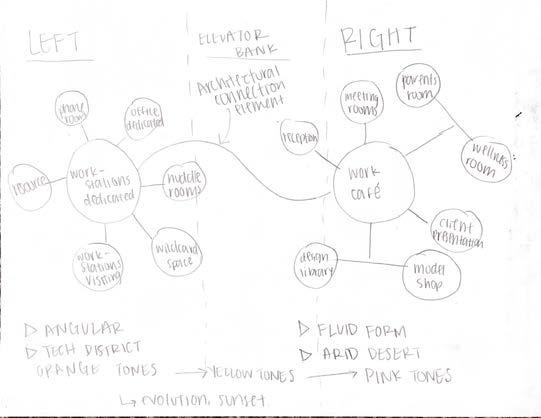 LEFT
ELEVATOR
BANK
RIGHT
Architectural
connection
element
phone
room
office
dedicated
resource
work-
stations
dedicated
huddle
rooms
work-
stations
visiting
wildcard
space
reception
meeting
rooms
parents
room
wellness
room
work
café
client
presentation
design
library
model
shop
▷ ANGULAR
▷ TECH DISTRICT
ORANGE TONES → YELLOW TONES → PINK TONES
↳ evolution, sunset
▷ FLUID FORM
▷ ARID DESERT